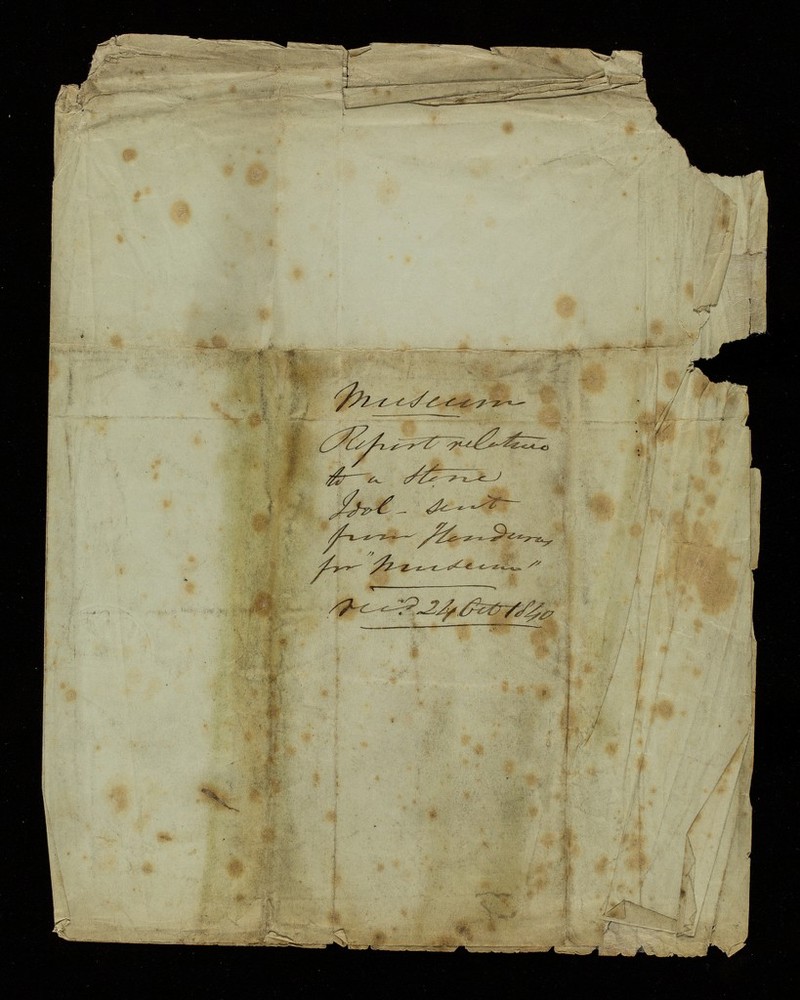 Museum
Report relative
to a stone
Idol - sent
from Honduras
for "Museum"
rec.d 24 Oct 1840